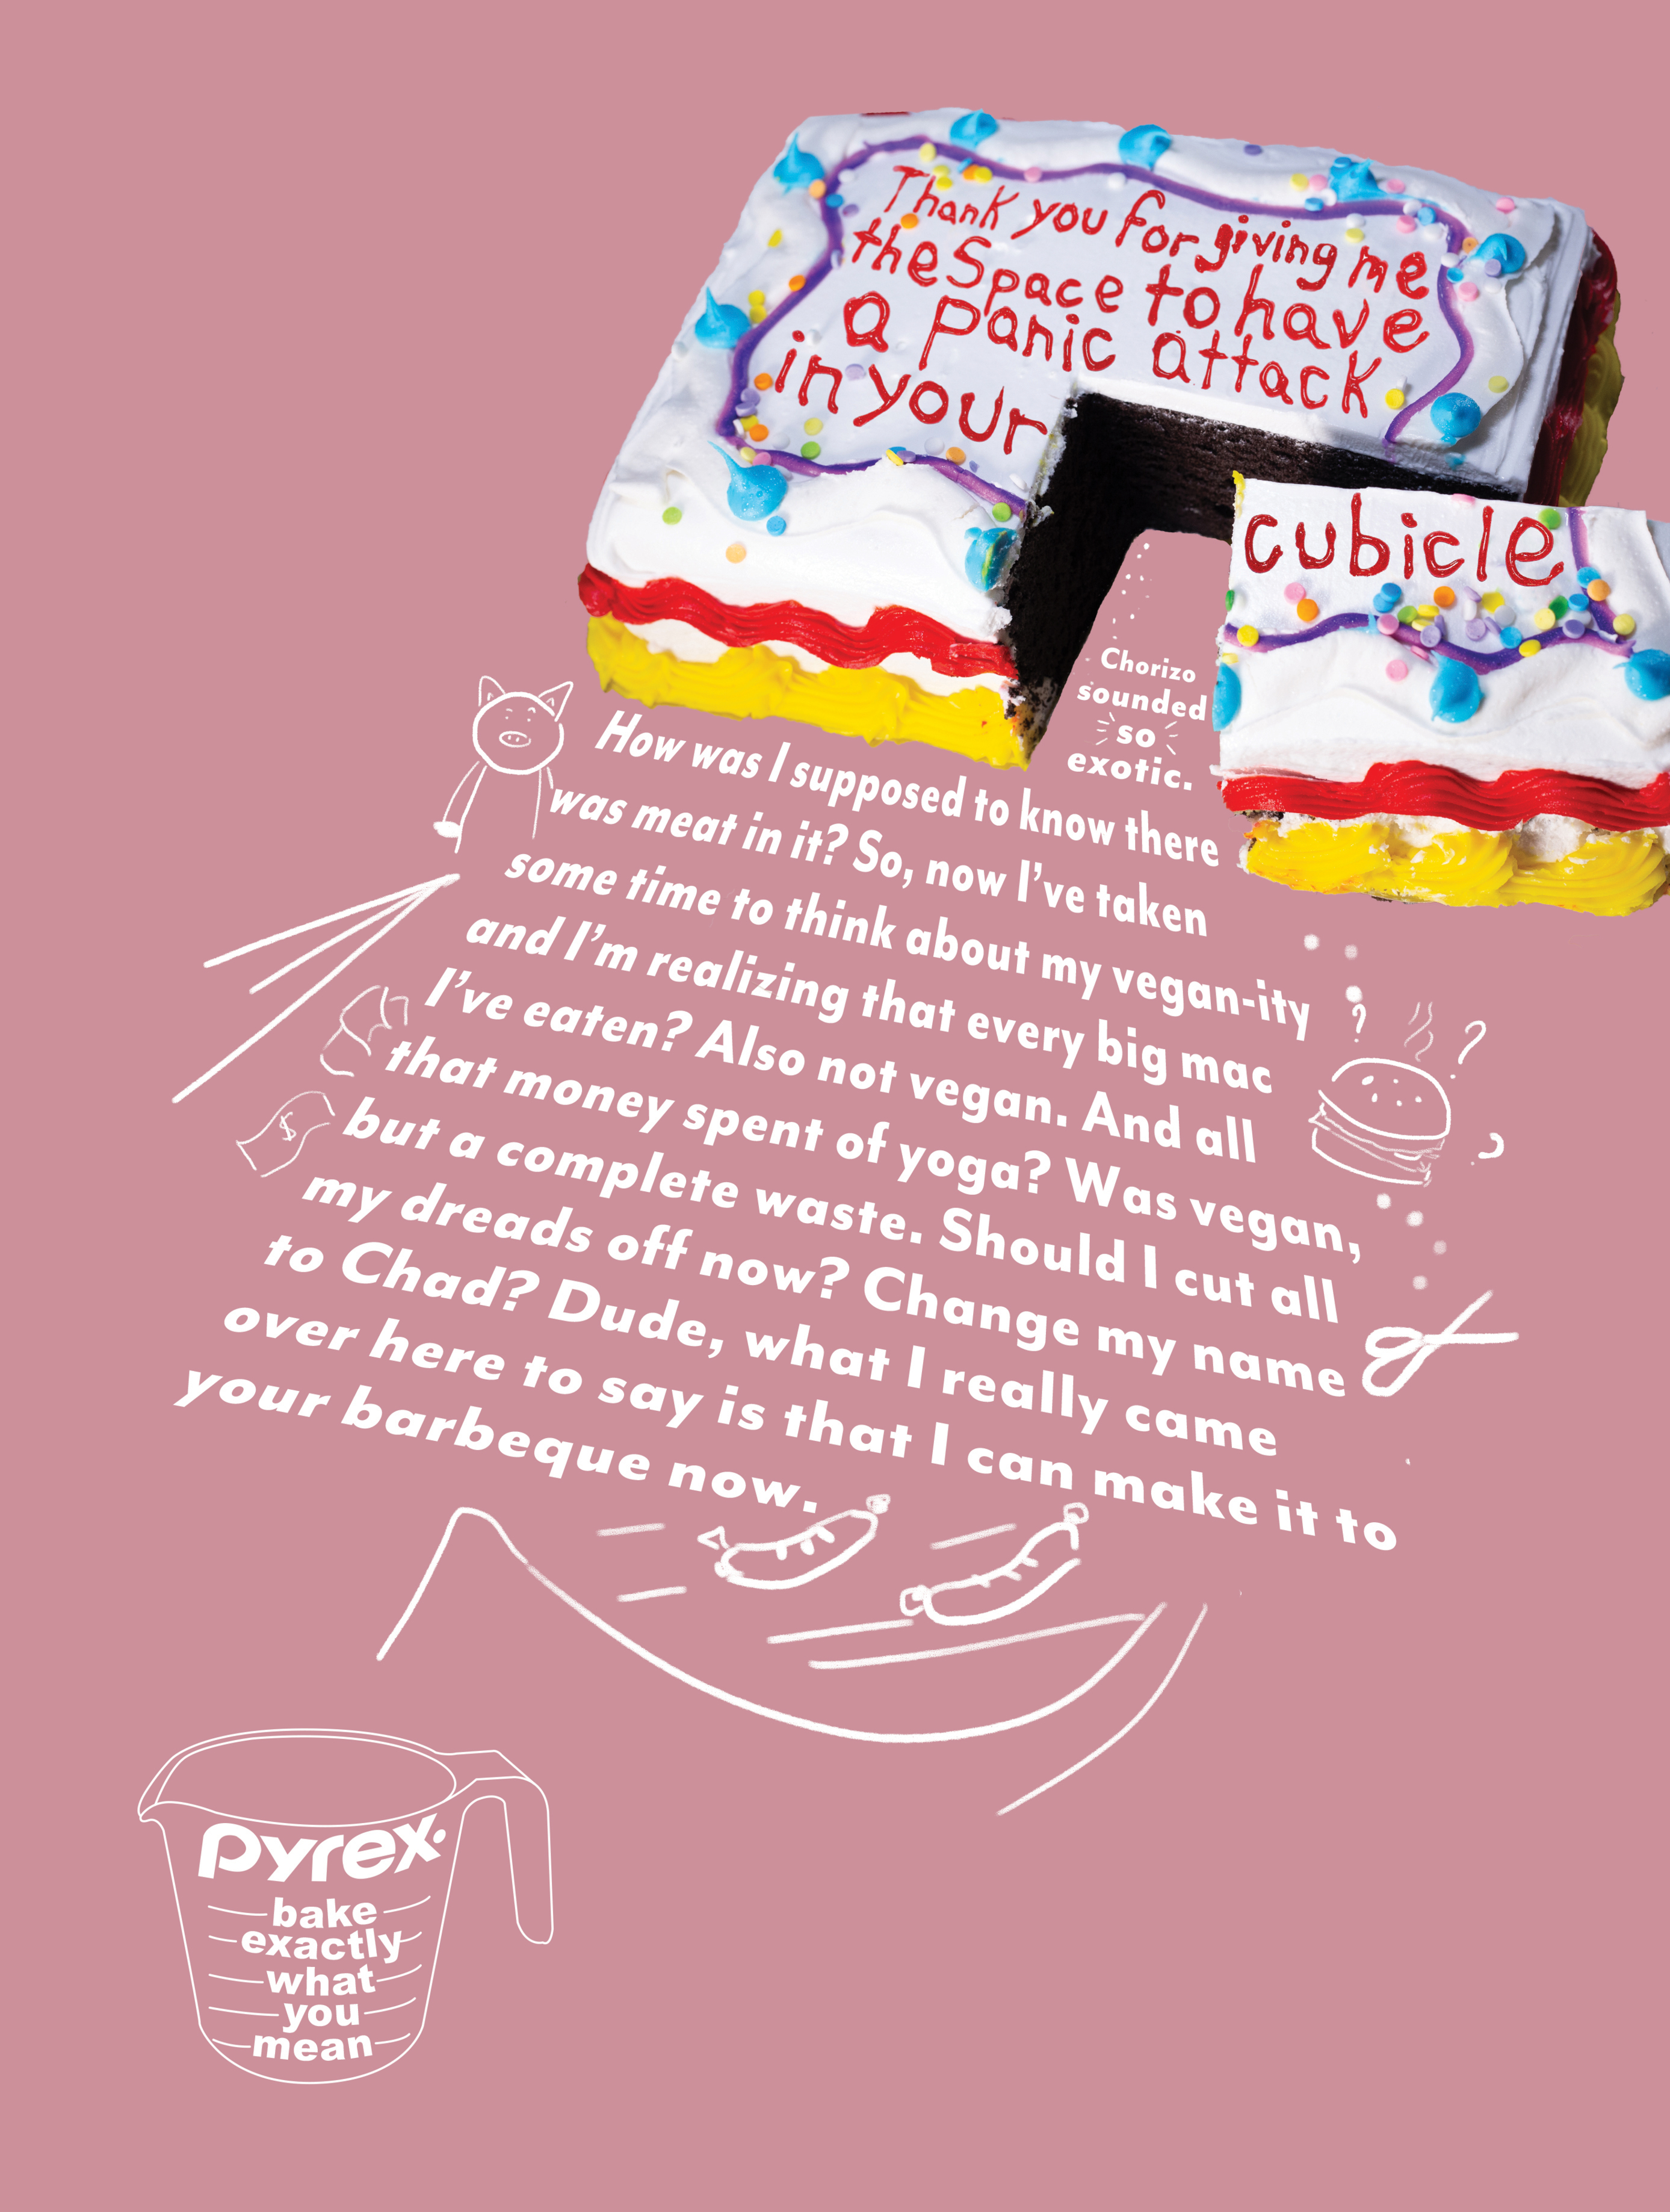 Thank you for giving me
the Space to have
a panic attack
in your
cubicle
Chorizo
sounded
so
exotic.
How was I supposed to know there
was meat in it? So, now I've taken
some time to think about my vegan-ity
and I'm realizing that every big mac
I've eaten? Also not vegan. And all
that money spent of yoga? Was vegan,
but a complete waste. Should I cut all
my dreads off now? Change my name
to Chad? Dude, what I really came
over here to say is that I can make it to
your barbeque now.
$
? ?
?
pyrex
bake
exactly
what
you
mean